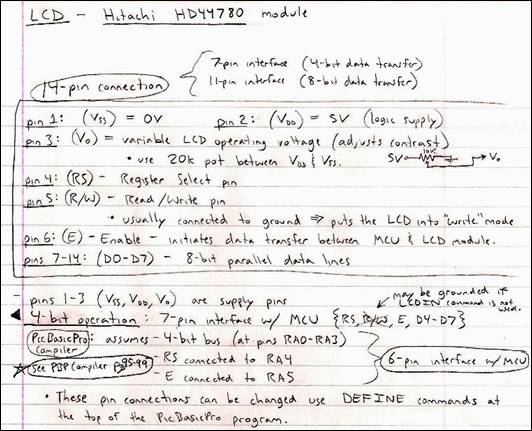 LCD - Hitachi HD44780 module
7-pin interface (4-bit data transfer)
11-pin interface (8-bit data transfer)
14-pin connection
pin 1: (Vss) = 0V pin 2: (VDD) = 5V (logic supply)
pin 3: (Vo) = variable LCD operating voltage (adjusts contrast)
• use 20k pot between VDD & Vss. 5V 10K Vo
pin 4: (RS) - Register Select pin
pin 5: (R/W) - Read/Write pin
• usually connected to ground ⇒ puts the LCD into "write" mode
pin 6: (E) - Enable - initiates data transfer between MCU & LCD module.
pins 7-14: (D0-D7) - 8-bit parallel data lines
- pins 1-3 (Vss, VDD, Vo) are supply pins
may be grounded if LCDIN command is not used.
4-bit operation: 7-pin interface w/ MCU {RS, R/W, E, D4-D7}
PicBasicPro Compiler: assumes - 4-bit bus (at pins RA0-RA3)
- RS connected to RA4
6-pin interface w/ MCU
See PBP Compiler pg 95-99
- E connected to RA5
• These pin connections can be changed use DEFINE commands at
the top of the PicBasicPro program.